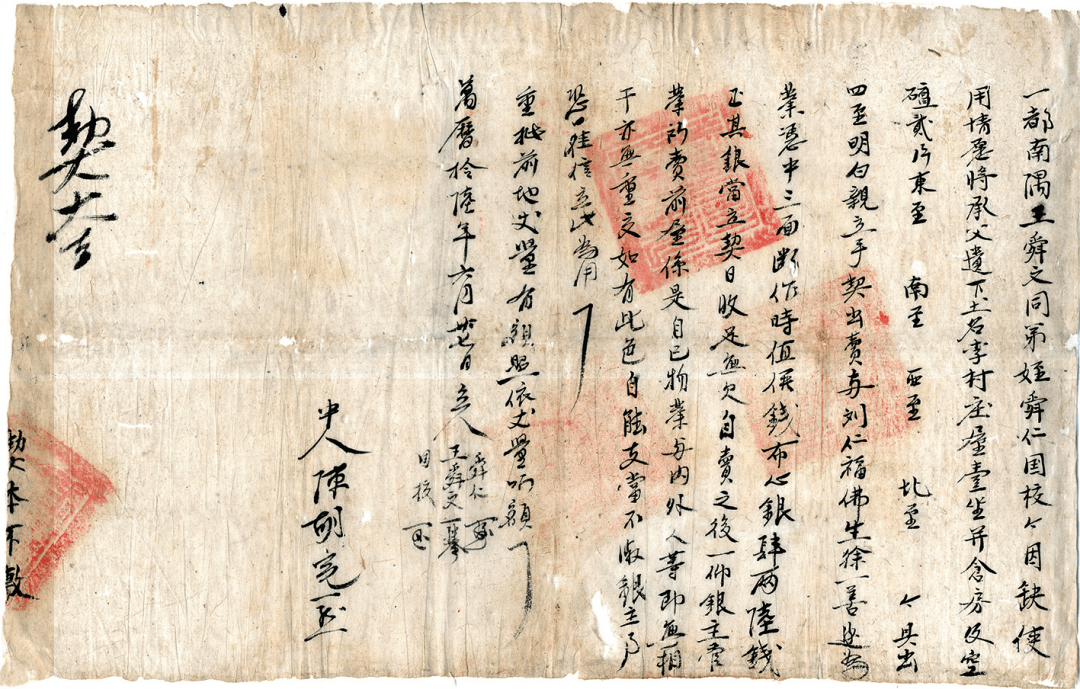 一都南隅王舜文同弟姪舜仁国校今因缺使
用情愿将承父遺下土名李村庄屋壹坐并倉房及空
礶貳片東至 南至 西至 北至 今具出
四至明白親立手契出賣与刘仁福佛生徐一善边為
業憑中三面断作時值價錢布心銀肆两陸錢
正其銀當立契日收足無欠自賣之後一仰銀主管
業所賣前屋係是自己物業与内外人等即無相
干亦無重交如有此色自能支當不涉銀主事
恐口难信立此為用
重批前地丈量有額照依丈量所額
萬曆拾陸年六月廿七日立人
舜仁
王舜文
国校
中人 陳胡寬
契大吉